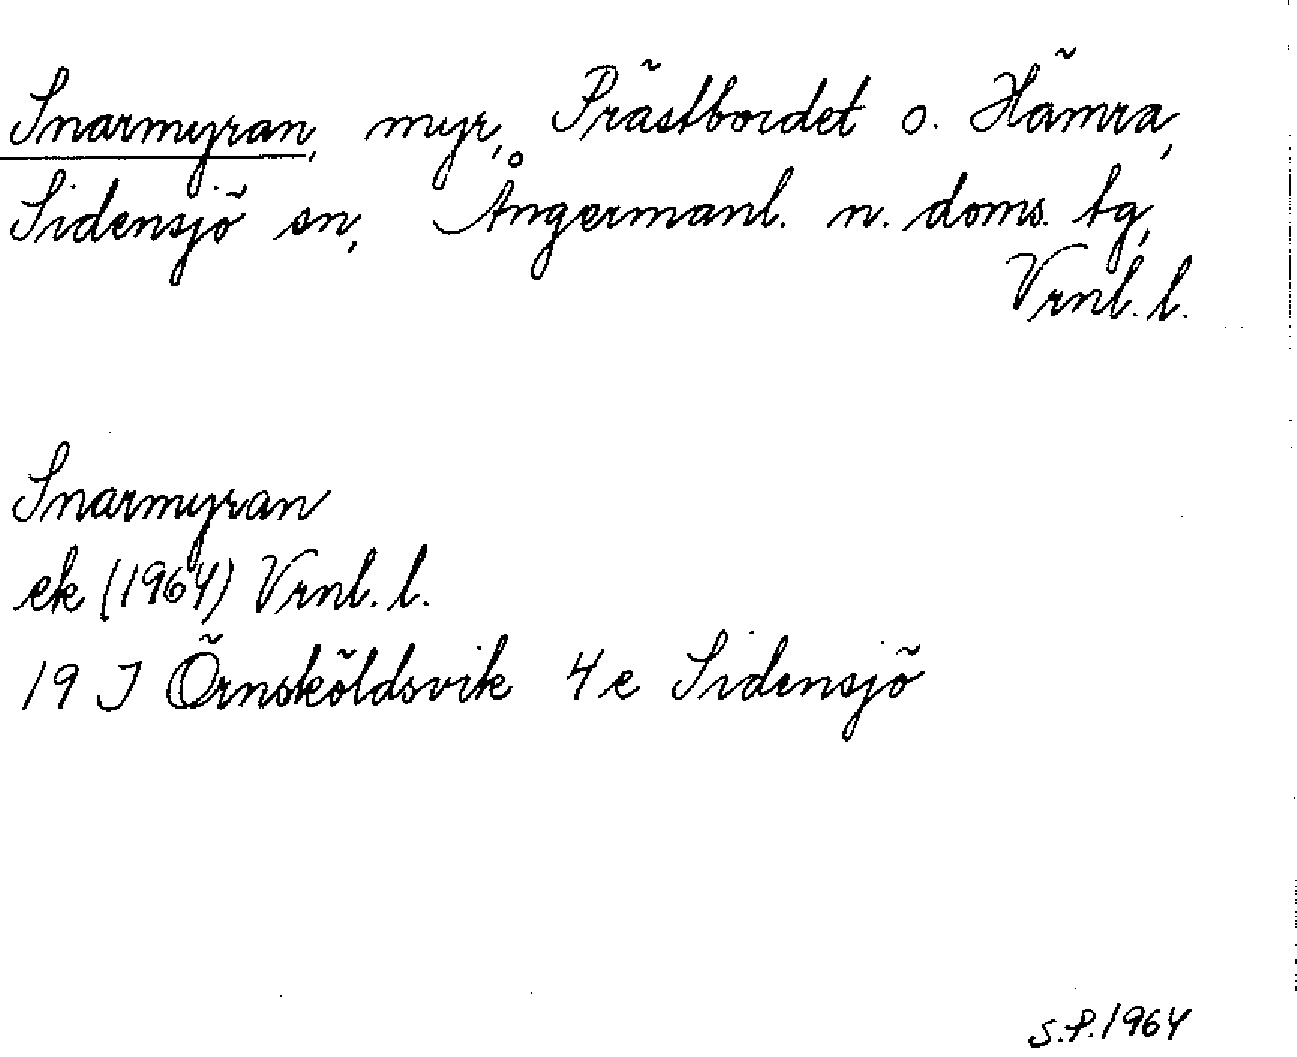 Snarmyran, myr, Prästbordet o. Hämra,
Sidensjö sn, Ångermanl. n. doms. tg,
Vrnl. l.
Snarmyran
ek (1964) Vrnl. l.
19 J Örnsköldsvik 4e Sidensjö
S.P. 1964